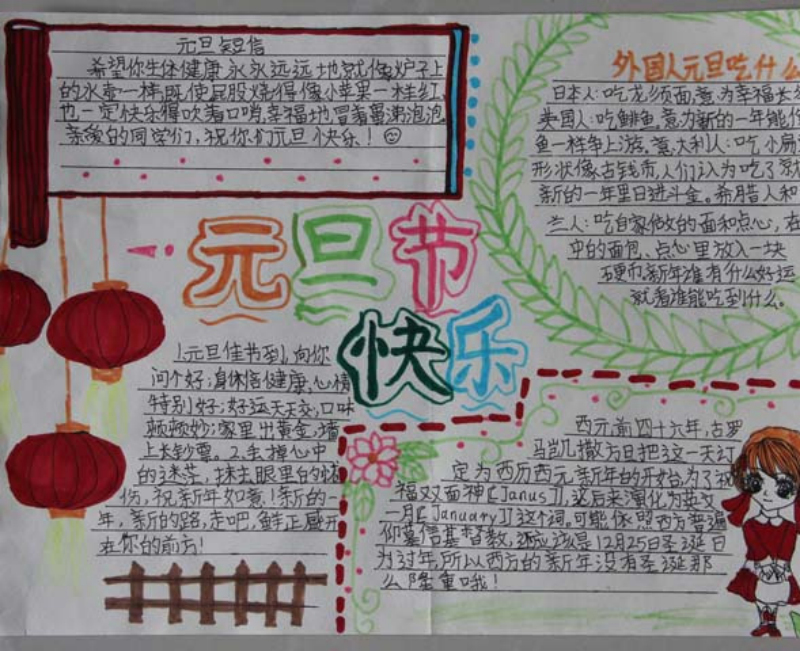 元旦短信
希望你生体健康永永远远地就像炉子上
的水壶一样既使屁股烧得像小苹果一样红,
也一定快乐得吹着口哨,幸福地冒着鼻沸泡泡,
亲爱的同学们,祝你们元旦快乐!
元旦节
快乐
外国人元旦吃什么
日本人:吃龙须面,意为幸福长
美国人:吃鲱鱼,意为新的一年能
鱼一样争上游,意大利人:吃小扁
形状像古钱币,人们认为吃了就
新的一年里日进斗金。希腊人和
兰人:吃自家做的面和点心,在
中的面包、点心里放入一块
硬币,新年谁有什么好运
就看谁能吃到什么。
1.元旦佳节到,向你
问个好;身体倍健康,心情
特别好;好运天天交,口味
顿顿妙;家里出黄金,墙
上长钞票。2.手掉心中
的迷茫,抹去眼里的忧
伤,祝新年如意!新的一
年,新的路,走吧,鲜正盛开
在你的前方!
西元前四十六年,古罗
马凯撒方日把这一天
定为西历西元新年的开始,为了祝
福双面神〖Janus〗,这后来演化为英文
一月〖January〗这个词。可能依照西方普遍
仰慕信基督教,适应该是12月25日圣诞日
为过年,所以西方的新年没有圣诞那
么隆重哦!